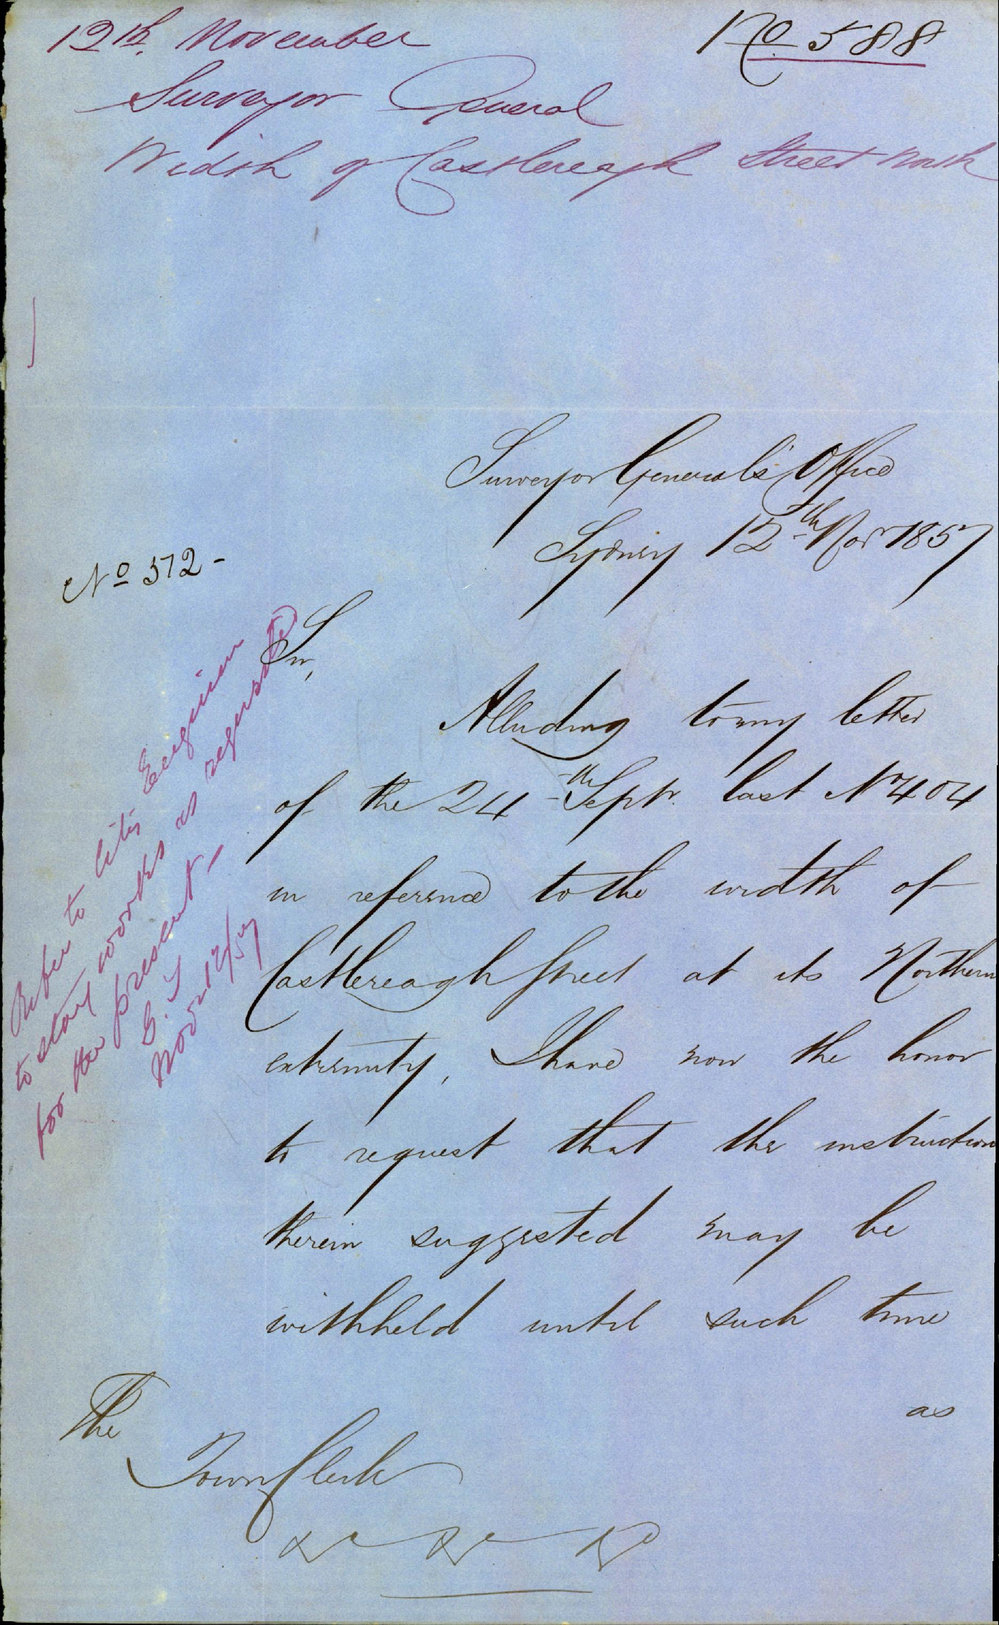 12th November
No 588
Surveyor General
Width of Castlereagh Street North
Surveyor General's Office
Sydney 12th Novr 1857
No 512 -
Sir,
Alluding to my letter
of the 24th Septr. last No 404
in reference to the width of
Castlereagh Street at its Northern
extremity, I have now the honor
to request that the instructions
therein suggested may be
withheld until such time
as
The
Town Clerk
&c &c &c
Refer to City Engineer
to stay works as requested
for the present -
Novr 12/57